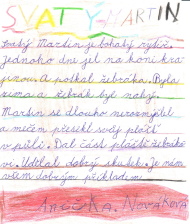 SVATÝ MARTIN
Svatý Martin je bohatý rytíř.
Jednoho dne jel na koni kra
jinou. A potkal žebráka. Byla
zima a žebrák byl nahý.
Martin se dlouho nerozmýšlel
a mečem přesekl svůj plášť
v půli. Dal část pláště žebráko
vi. Udělal dobrý skutek. Je nám
všem dobrým příkladem.
ANEŽKA NOVÁKOVÁ